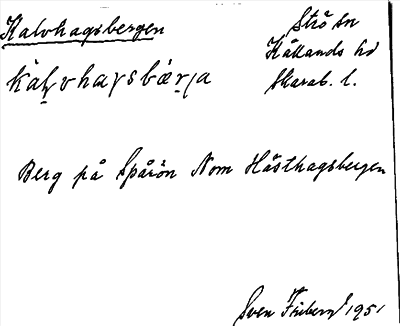 Kalvhagsbergen
Strö sn
Kållands hd
Skarab. l.
Berg på Spårön Nom Hästhagsbergen
Sven Friberg 1951